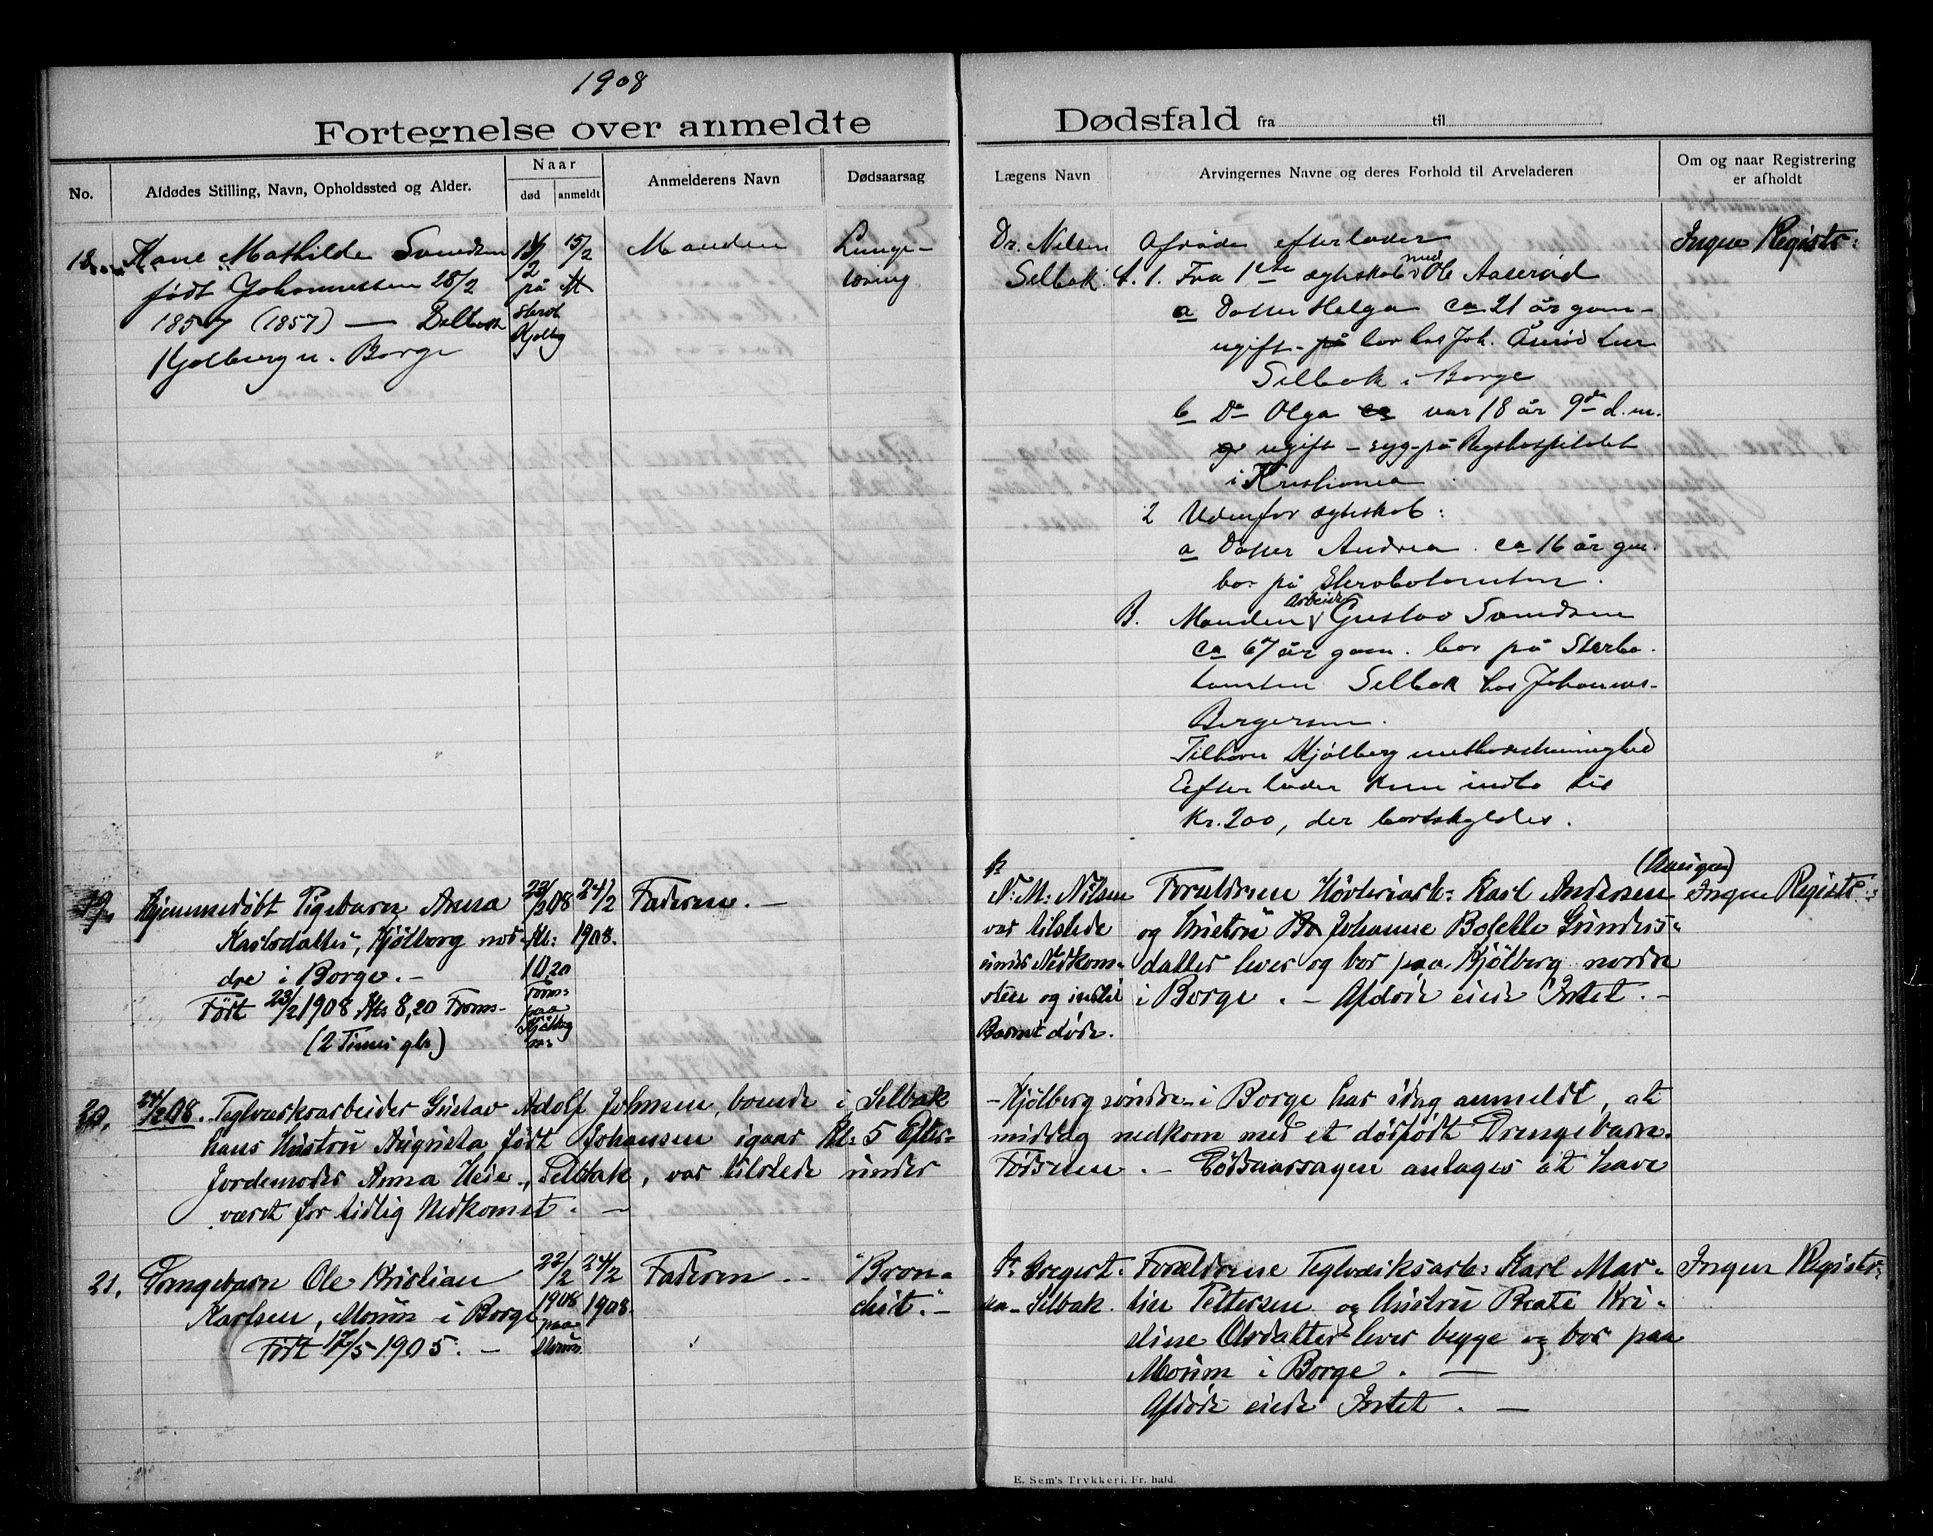 1908
Fortegnelse over anmeldte Dødsfald fra til
No.
Afdødes Stilling, Navn, Opholdssted og Alder.
Naar
død
anmeldt
Anmelderens Navn
Dødsaarsag
Lægens Navn
Arvingernes Navne og deres Forhold til Arveladeren
Om og naar Registrering
er afholdt
18.
Kone Mathilde Svendsen
født Johannessen 28/2
1857 (1857) —
Kjølberg n. Borge
/2
på
Kjølbg
15/2
Manden
Lunge-
Dr. Nilsen
Selbak
Afdøde efterlader
A. 1. Fra 1ste ægteskab med Ole Aaserød
a Datter Helga ca 21 år gam-
ugift - på bor hos Joh. Åserød
Selbak i Borge
b Do Olga ca var 18 år 9de d.m.
ugift - syg på Rigshospitalet
i Kristiania
2 Udenfor ægteskab:
a Datter Andrea. ca 16 år gm.
bor på
B. Manden Arbeider Gustav Svendsen
ca 67 år gam. bor på Sterbo-
tomten Selbak hos Johannes
Bergersen.
Tilhører Kjølberg
Efterlader kun indbo til
Kr. 200, der bortskyldes.
Ingen Registr:
19.
Hjemmedøbt Pigebarn Anna
Karlsdatter, Kjølberg nor-
dre i Borge. -
Født 23/2 1908 Kl. 8,20 Form-
(2 Timer gl.)
23/2 08
Kl:
10,20
Form-
paa
Kjølberg
n:
24/2
1908.
Faderen. -
Dr
N. M. Nilsen
var tilstede
under Nedkom-
sten og indtil
Barnet døde.
Forældrene Høvleriarb: Karl Andersen (Huseigen)
og Hustru Johanne Bolette Gunders-
datter lever og bor paa Kjølberg nordre
i Borge. - Afdøde eiede Intet. -
Ingen Registr:
20.
24/2 08. Teglværksarbeider Gustav Adolf Johnsen, boende i Selbak - Kjølberg søndre - i Borge har idag anmeldt, at
hans Hustru Augusta født Johansen igaar Kl: 5 Efter- middag nedkom med et dødfødt Drengebarn.
Jordemoder Anna Heie, Selbak, var tilstede under Fødselen. - Dødsaarsagen antages at have
været for tidlig Nedkomst. -
21.
Drengebarn Ole Kristian
Karlsen, Moum i Borge
Født 12/5 1905. -
22/2
1908
paa
Moum
24/2
1908.
Faderen -
"Bron-
chit." -
Dr Gregert-
sen - Selbak.
Forældrene Teglværksarb: Karl Mar-
tin Pettersen og Hustru Beate Kri-
stine Olsdatter lever begge og bor paa
Moum i Borge. -
Afdøde eiede Intet. -
Ingen Registr:
E. Sem's Trykkeri, Fr. hald.